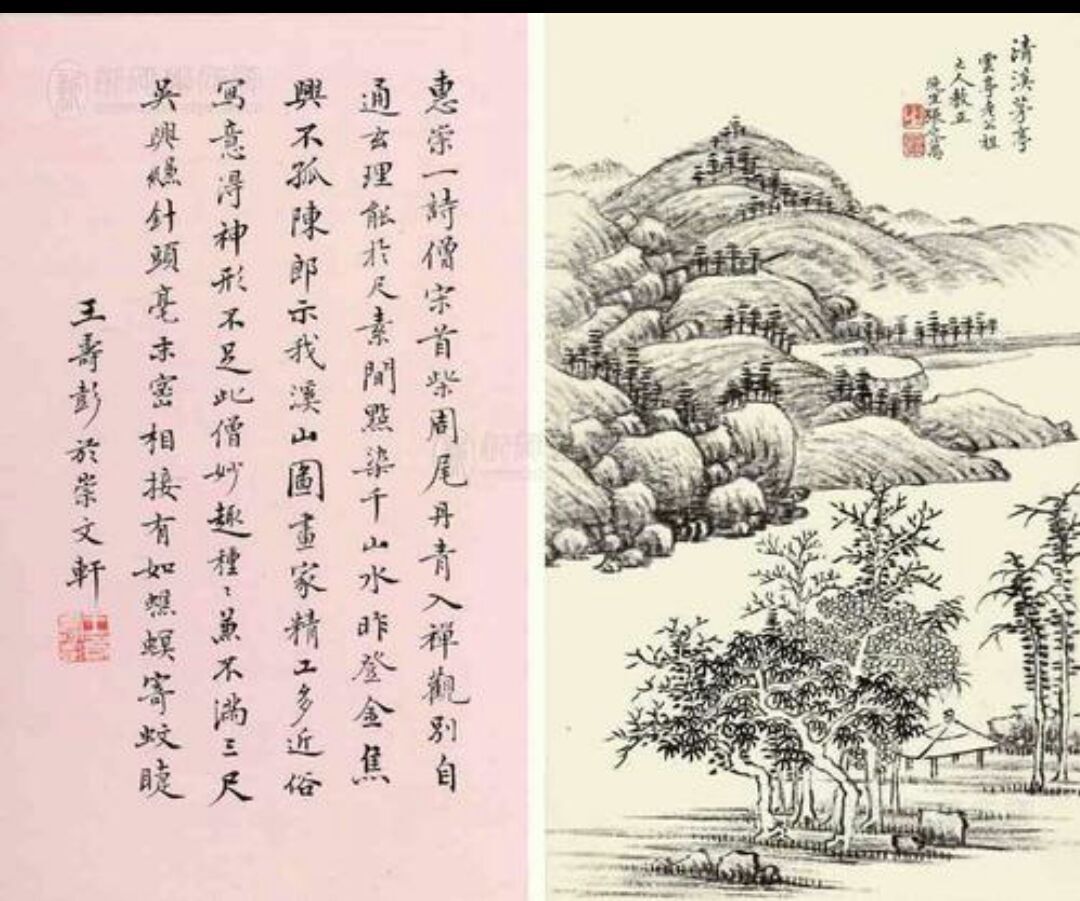 惠崇一詩僧宋首柴周尾丹青入禪觀別自
通玄理能於尺素間點染千山水昨登金焦
興不孤陳郎示我溪山圖畫家精工多近俗
寫意得神形不足此僧妙趣種〻兼不滿三尺
吳興縑針頭毫末密相接有如蟭螟寄蚊睫
王壽彭於崇文軒
清溪茅亭
雲亭老公祖
大人教正
張之萬